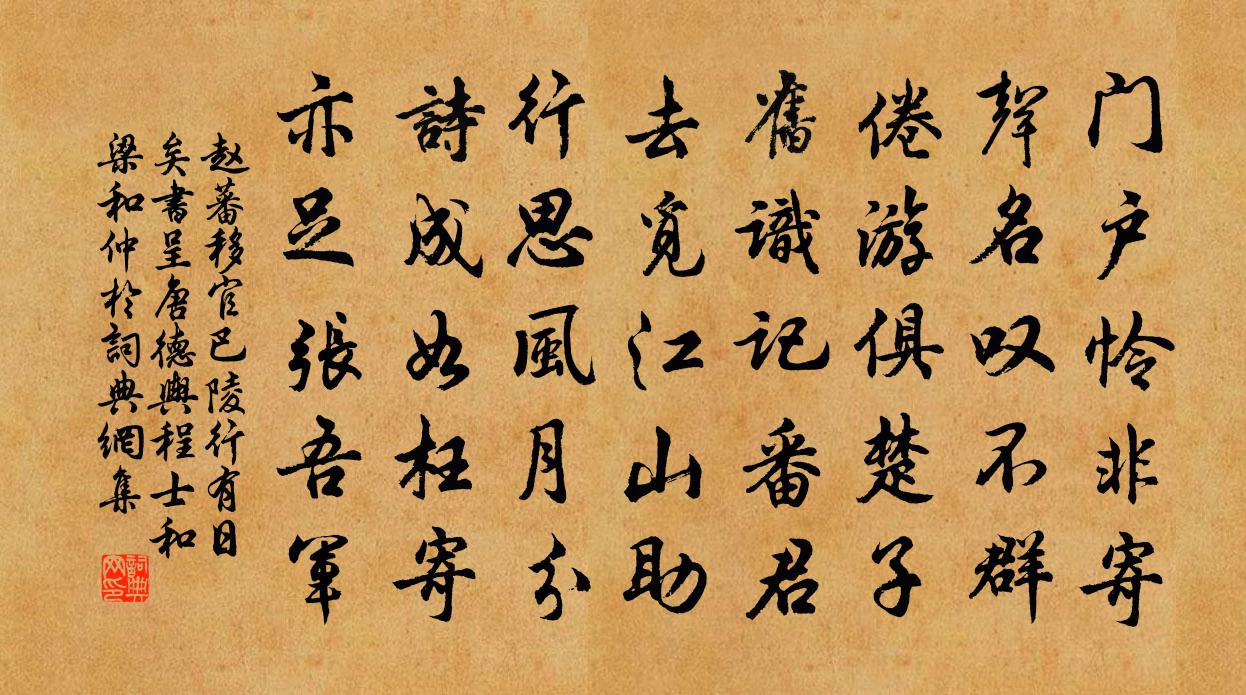 门户怜非寄
聲名叹不群
倦游俱楚子
舊識记番君
去觅江山助
行思風月分
詩成如枉寄
亦足張吾軍
赵蕃移官巴陵行有日
矣書呈唐德輿程士和
梁和仲於詞典網集
詞典网印